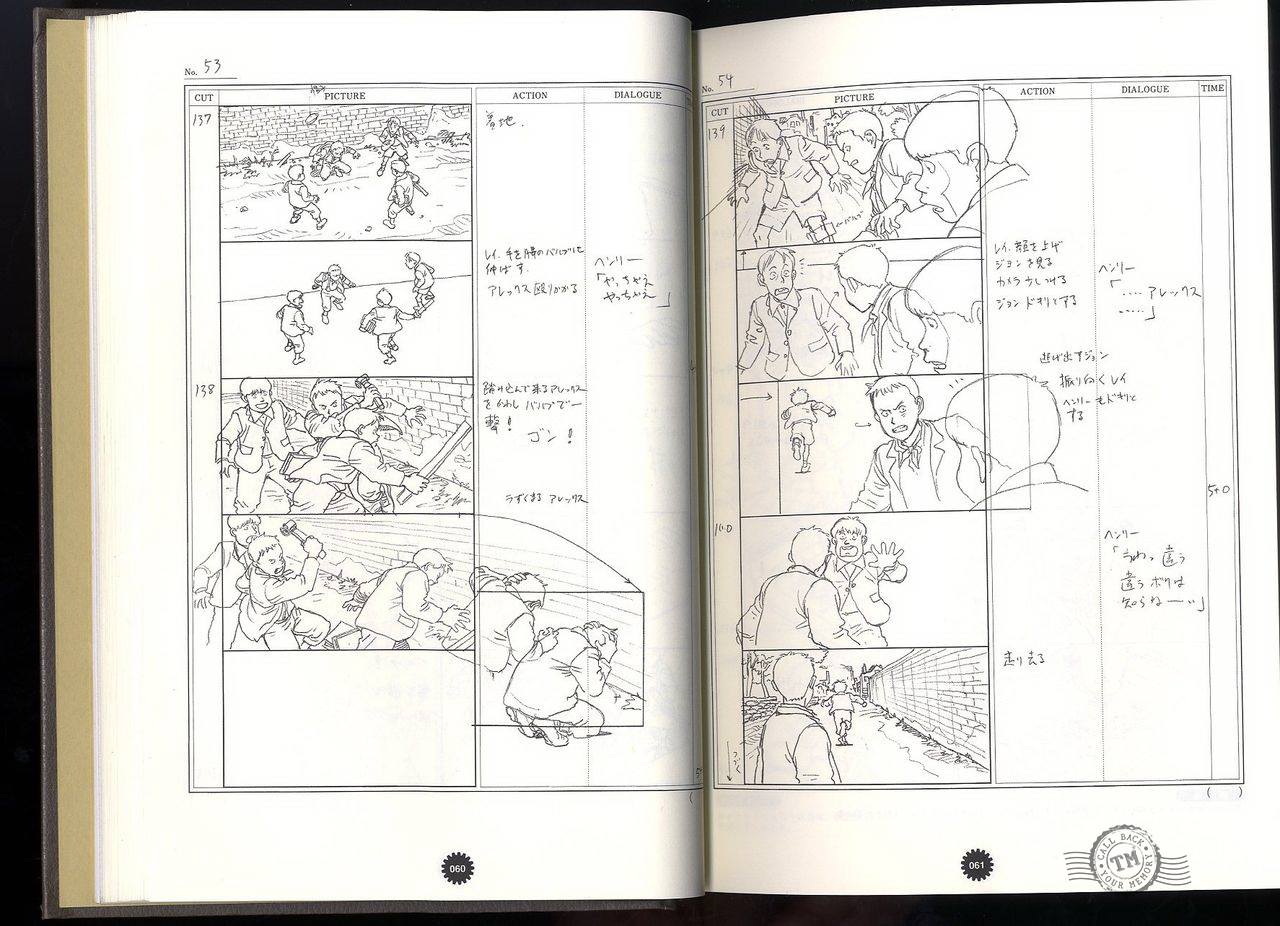 No. 53
CUT PICTURE ACTION DIALOGUE
137
着地.
レイ、手を腰のバルブに
伸ばす.
アレックス殴りかかる
ヘンリー
「やっちゃえ
やっちゃえ」
138
踏み込んで来るアレックス
をかわし バルブで一
撃!
ゴン!
うずくまる アレックス
060
No. 54
CUT PICTURE ACTION DIALOGUE TIME
139
←バルブ
レイ、顔を上げ
ジョンを見る
カメラ少しつける
ジョンドキリとする
ヘンリー
「‥‥アレックス
‥‥」
逃げ出すジョン
振り向くレイ
ヘンリーもドキリと
する
5+0
140
ヘンリー
「うわっ 違う
違うボクは
知らねーい」
走り去る
つづく
( )
061
CALL BACK
TM
YOUR MEMORY